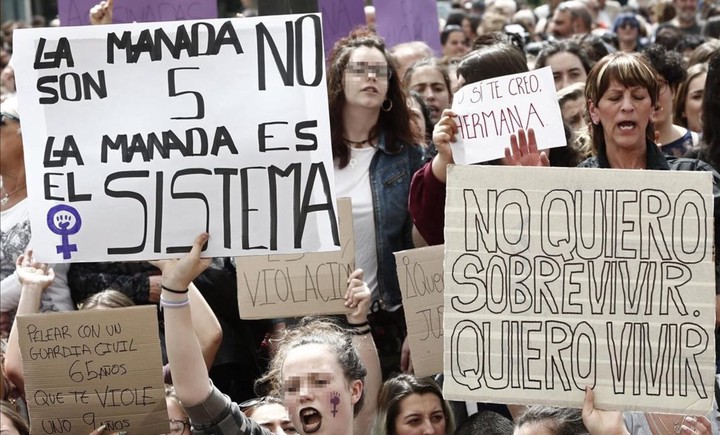 LA MANADA NO
SON 5
LA MANADA ES
EL SISTEMA
SÍ TE CREO.
HERMANA.
NO QUIERO
SOBREVIVIR.
QUIERO VIVIR
ES
VIOLACIÓN
¡QUE
JU
PELEAR CON UN
GUARDIA CIVIL
65 AÑOS
QUE TE VIOLE
UNO 9 AÑOS